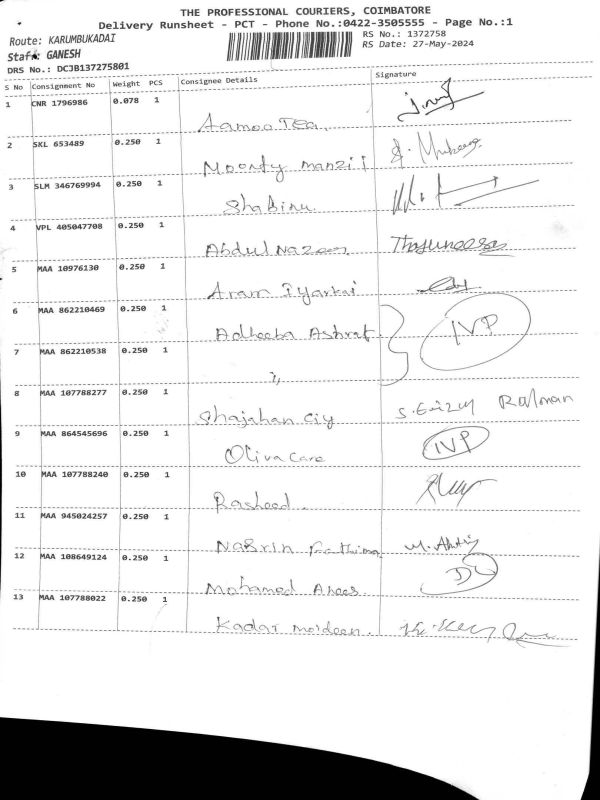 THE PROFESSIONAL COURIERS, COIMBATORE
Delivery Runsheet - PCT - Phone No.:0422-3505555 - Page No.:1
Route: KARUMBUKADAI
RS No.: 1372758
Staff: GANESH
RS Date: 27-May-2024
DRS No.: DCJB137275801
S No Consignment No Weight PCS Consignee Details Signature
1 CNR 1796986 0.078 1
Aamoo Tea
2 SKL 653489 0.250 1
Moordy manzil
3 SLM 346769994 0.250 1
Shabinu
4 VPL 405047708 0.250 1
Abdul Nazeer
5 MAA 10976130 0.250 1
Aram
6 MAA 862210469 0.250 1
Adheeba Ashraf IVP
7 MAA 862210538 0.250 1
"
8 MAA 107788277 0.250 1
Shajahan Rahman
9 MAA 864545696 0.250 1
Oliva Care IVP
10 MAA 107788240 0.250 1
Rasheed
11 MAA 945024257 0.250 1
Nasrin Fathima
12 MAA 108649124 0.250 1
Mohamed Anees DL
13 MAA 107788022 0.250 1
Kadar moideen